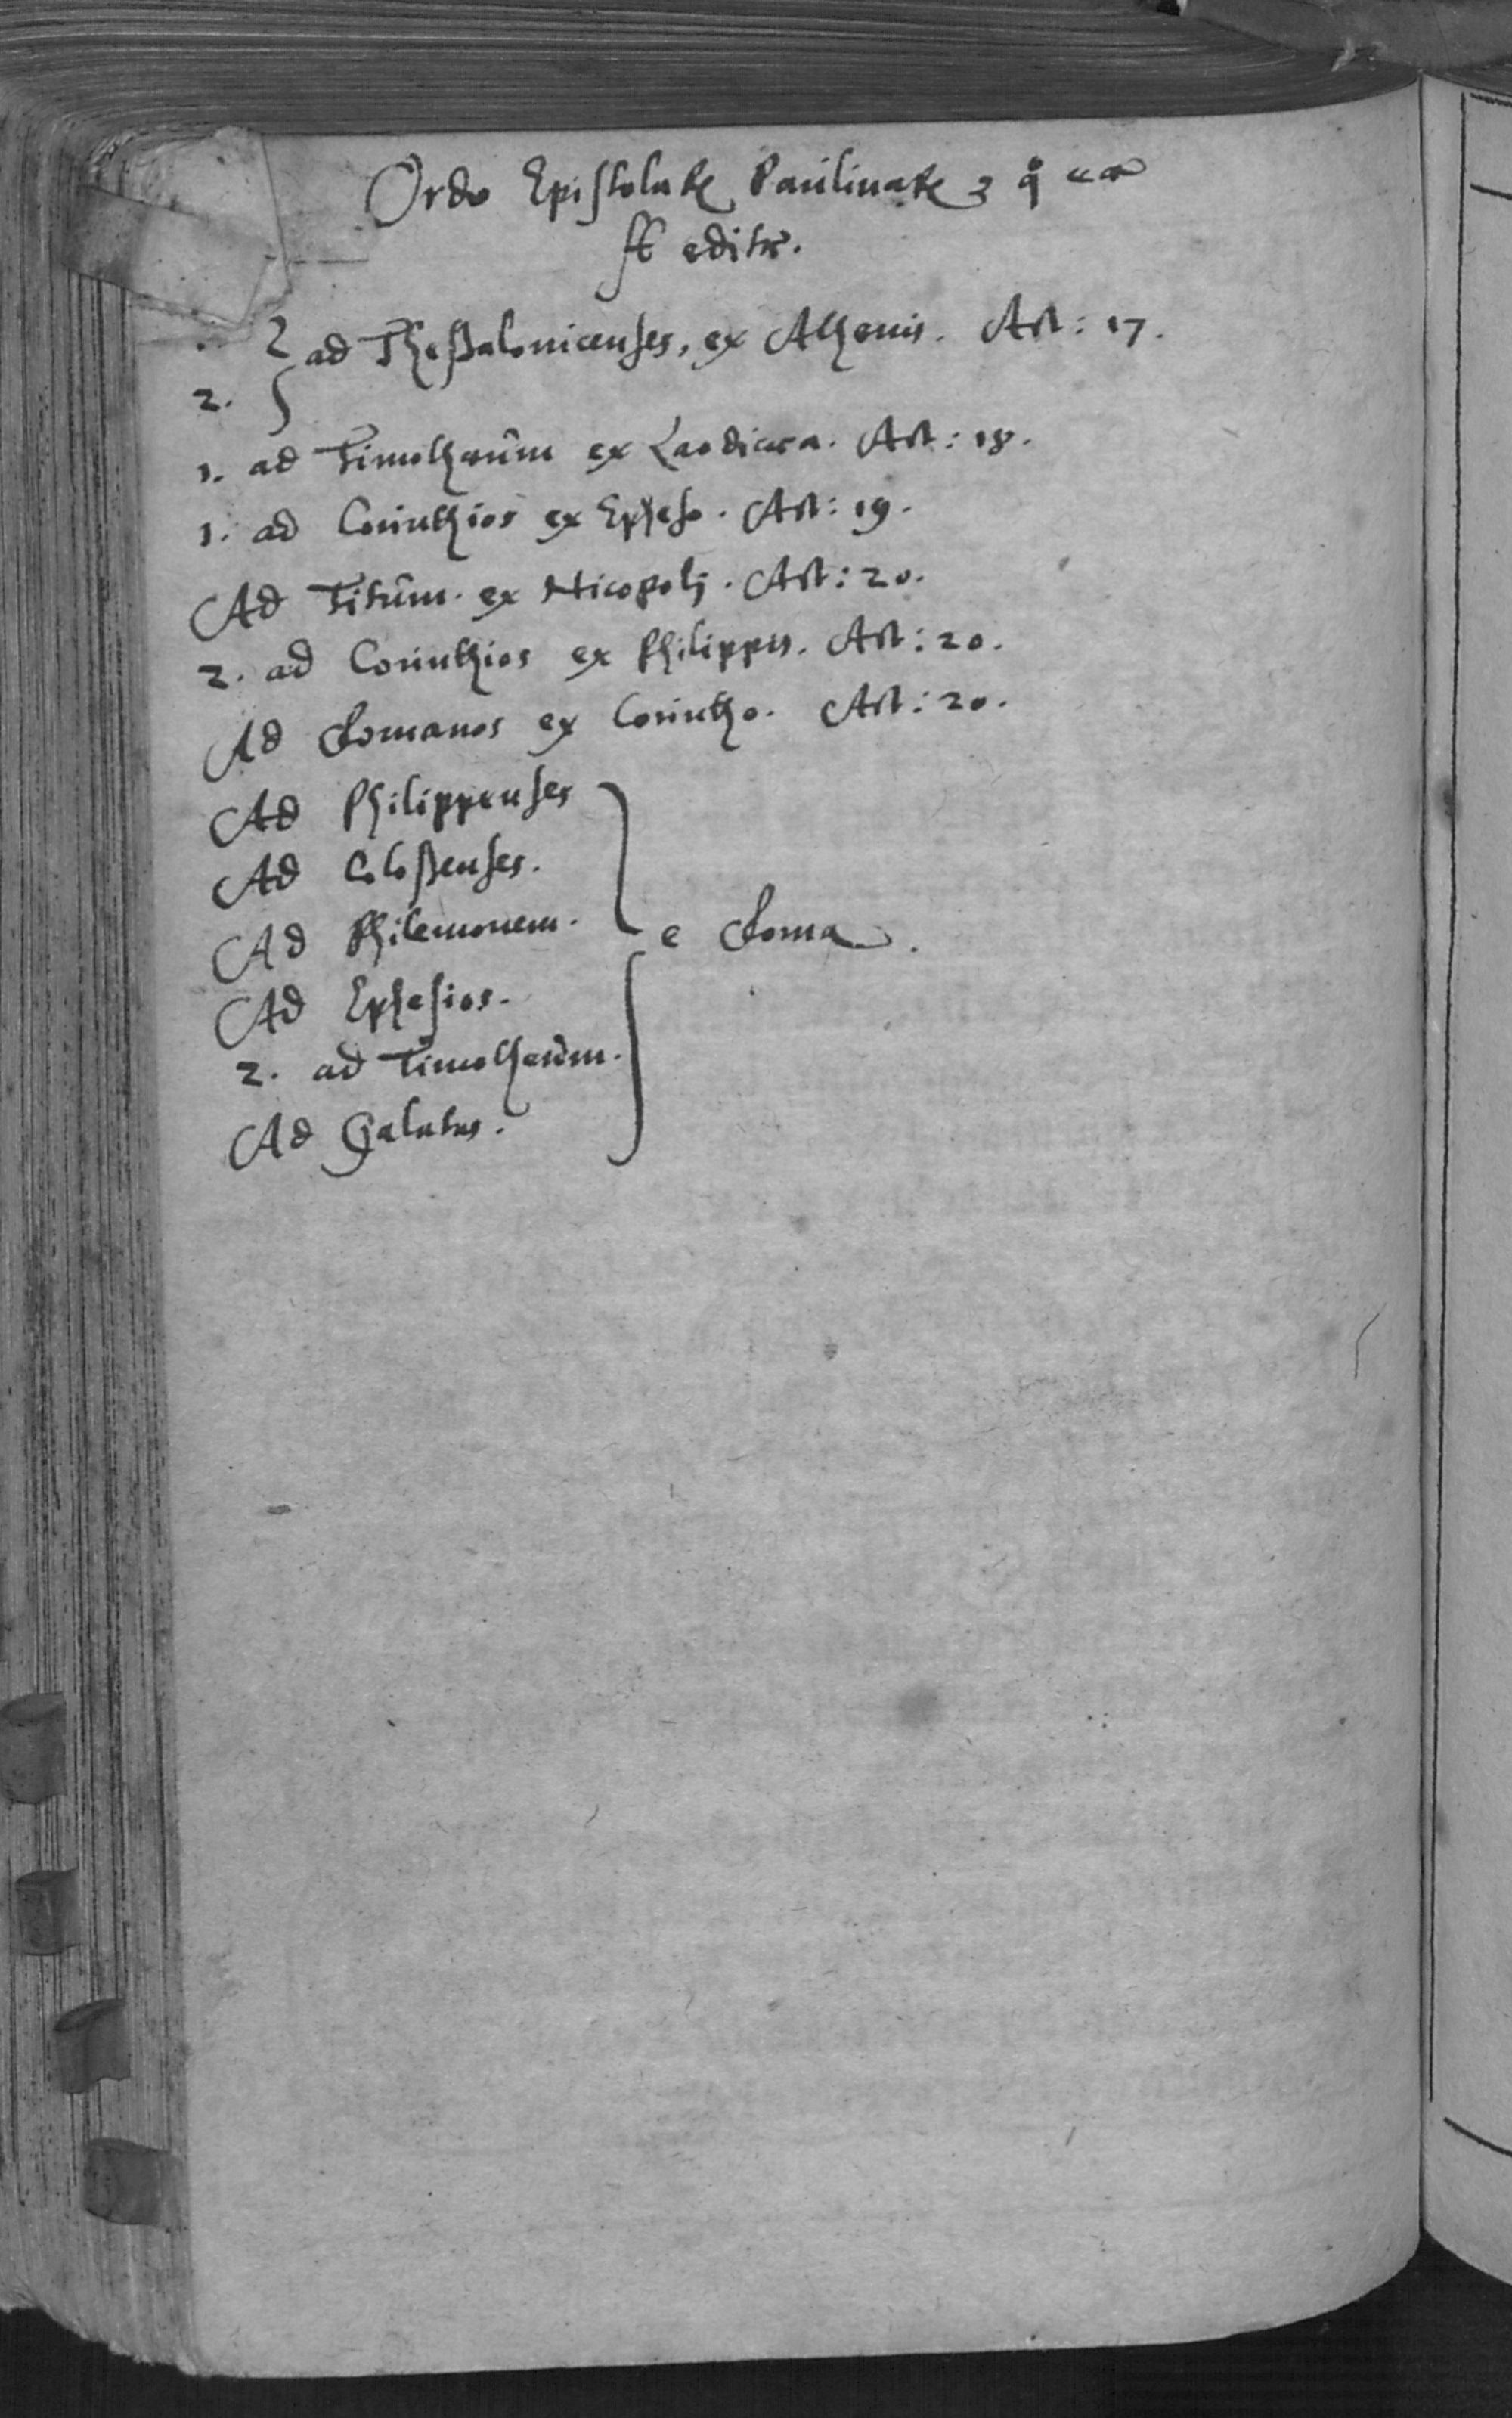 Ordo Epistolarꝝ Paulinarꝝ
editæ.
ad Theßalonicenses, ex Athenis. Act: 17.
2.
1. ad Timotheum ex Laodicea. Act: 18.
1. ad Corinthios ex Epheso. Act: 19.
Ad Titum. ex Nicopolj. Act: 20.
2. ad Corinthios ex Philippis. Act: 20.
Ad Romanos ex Corintho. Act: 20.
Ad Philippenses
Ad Coloßenses.
Ad Philemonem.
e Roma.
Ad Ephesios.
2. ad Timotheum.
Ad Galatas.